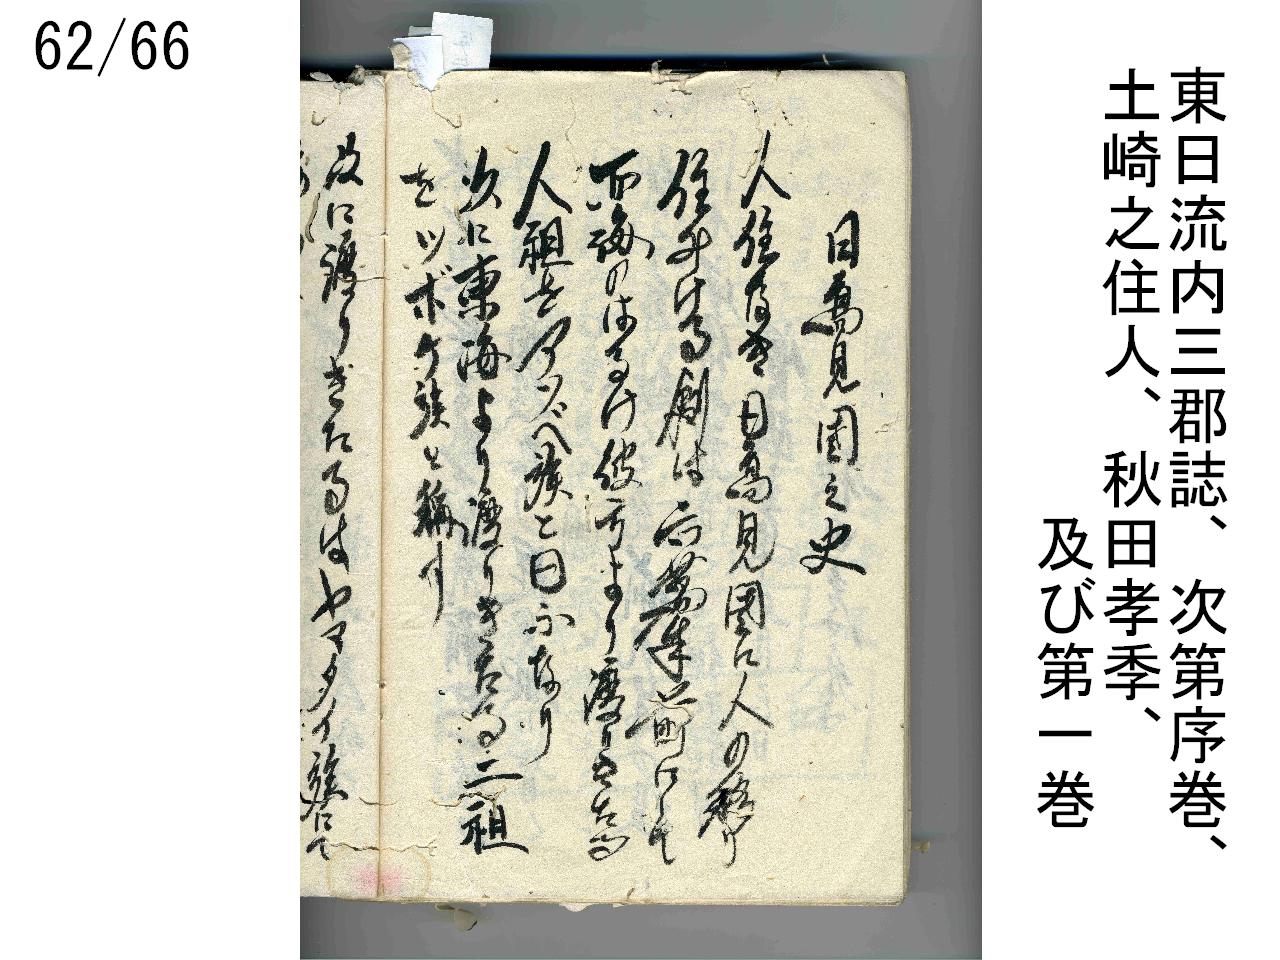 62/66
東日流内三郡誌、次第序巻、
土崎之住人、秋田孝季、
及び第一巻
日高見国之史
人住なき日高見国に人の移り
住みける創は六萬年前にして
西海のはるけ彼方より渡りきたる
人祖をアソベ族と曰ふなり
次に東海より渡りきたる二祖
をツボケ族と稱す
次に渡りきたるはヤマタイ族にて